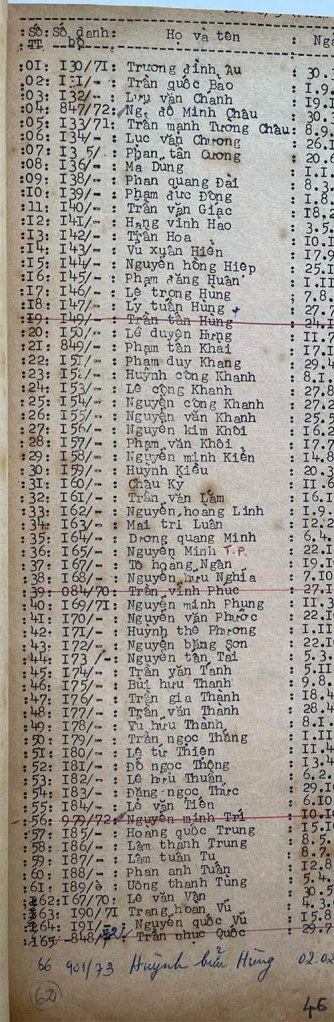 :Số:Số danh: Họ và tên : Ngà
:TT bộ
:01: I30/71: Trương đình Âu : 30.
:02: I31/-: Trần quốc Bảo : I.9.
:03: I32/-: Lưu văn Chanh : I9.
:04: 847/72: Ng. đỗ Minh Châu : 30.
:05: I33/71: Trần mạnh Tương Châu: 8.9.
:06: I34/-: Lục văn Chương : 26.
:07: I35/-: Phan tấn Cương : 20.
:08: I36/-: Mạ Dung : I.I
:09: I38/-: Phan quang Đài : 8.
:I0: I39/-: Phạm đức Đồng : I.8.
:11: I40/-: Trần văn Giác : I8.
:I2: I41/-: Hàng vĩnh Hao : 3.5.
:I3: I42/-: Trần Hoa : I0.
:I4: I43/-: Vũ xuân Hiển : I7.9
:I5: I44/-: Nguyễn hồng Hiệp : 25.I
:I6: I45/-: Phạm đăng Huân : I.II
:I7: I46/-: Lê trọng Hùng : 7.8
:I8: I47/-: Lý tuấn Hùng : 27.7
:I9: I49/-: Trần tấn Hùng : 24.
:20: I50/-: Lê duyên Hưng : II.7
:21: 849/-: Phạm tấn Khai : I7.I
:22: I51/-: Phạm duy Khang : 29.4
:23: I52/-: Huỳnh công Khanh : 8.I
:24: I53/-: Lê công Khanh : 27.8
:25: I54/-: Nguyễn công Khanh : 27.2
:26: I55/-: Nguyễn văn Khanh : 25.5
:27: I56/-: Nguyễn kim Khôi : I6.2
:28: I57/-: Phạm văn Khôi : I7.7
:29: I58/-: Nguyễn minh Kiên : I4.8
:30: I59/-: Huỳnh Kiều : 20.3
:31: I60/-: Châu Kỳ : II.6
:32: I6I/-: Trần văn Lắm : I6.
:33: I62/-: Nguyễn hoàng Linh : I.9.
:34: I63/-: Mai tri Luân : I2.
:35: I64/-: Dương quang Minh : 6.4.
:36: I65/-: Nguyễn Minh T.P. : 22.I
:37: I67/-: Tô hoàng Ngân : I9.I
:38: I68/-: Nguyễn hữu Nghĩa : 7.I0
:39: 084/70: Trần vĩnh Phúc : 27.I
:40: I69/71: Nguyễn minh Phụng : II.
:4I: I70/-: Nguyễn văn Phước : 22.
:42: I7I/-: Huỳnh thế Phương : I.II
:43: I72/-: Nguyễn bằng Sơn : 22.
:44: I73 /-: Nguyễn tấn Tài : 5.3.
:45: I74/-: Trần văn Tánh : 5.II
:46: I75/-: Bùi hữu Thanh : 9.8.
:47: I76/-: Trần gia Thành : I8.
:48: I77/-: Trần văn Thành : 28.4
:49: I78/-: Vũ hữu Thành : 8.I
:50: I79/-: Trần ngọc Thắng : I.II
:51: I80/-: Lê tứ Thiện : II.4
:52: I8I/-: Đỗ ngọc Thông : I3.4
:53: I82/-: Lê hữu Thuần : 6.2.
:54: I83/-: Đặng ngọc Thức : 29.
:55: I84/-: Lê văn Tiên : 6.I0
:56: 979/72: Nguyễn minh Trí : I0.I0
:57: I85/-: Hoàng quốc Trung : I5.I0
:58: I86/-: Lâm thành Trung : 8.5.
:59: I87/-: Lâm tuấn Tu : 8.7.
:60: I88/-: Phan anh Tuấn : I2.8
:61: I89/-: Uông thanh Tùng : 5.4.
:162: I67/70: Lê văn Vân : 30.5
:163: I90/71 Trang hoàn Vũ : 4.3.
:164: I9I/- Nguyễn quốc Vũ : I5.8
:165: 848/72: Trần phục Quốc : 29.7
66 901/73 Huỳnh bửu Hùng 02.02
(62)
46